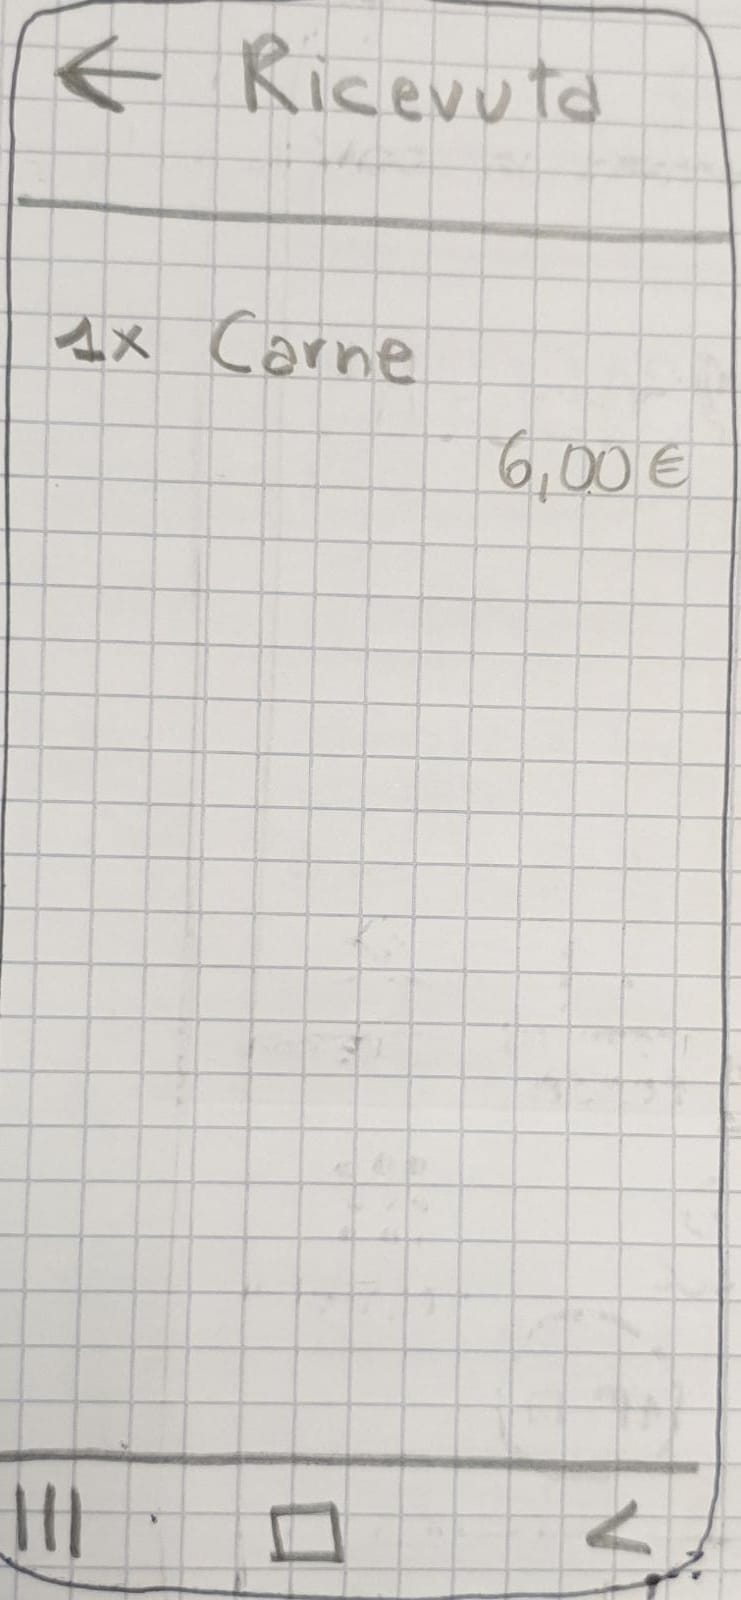 ← Ricevuta
1x Carne
6,00 €